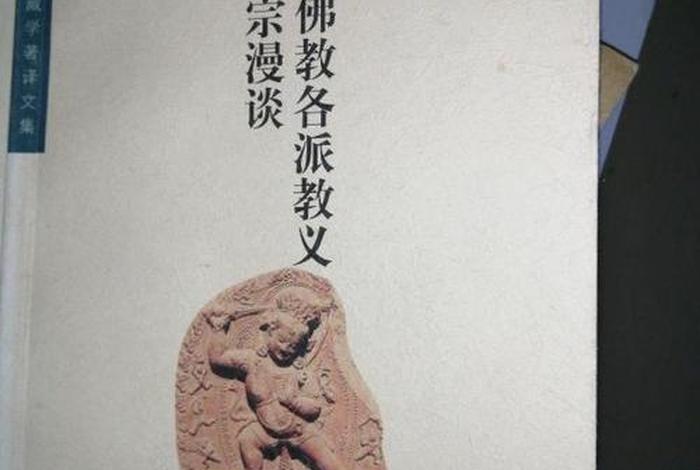 佛教各派教义
宗漫谈
藏学著译文集